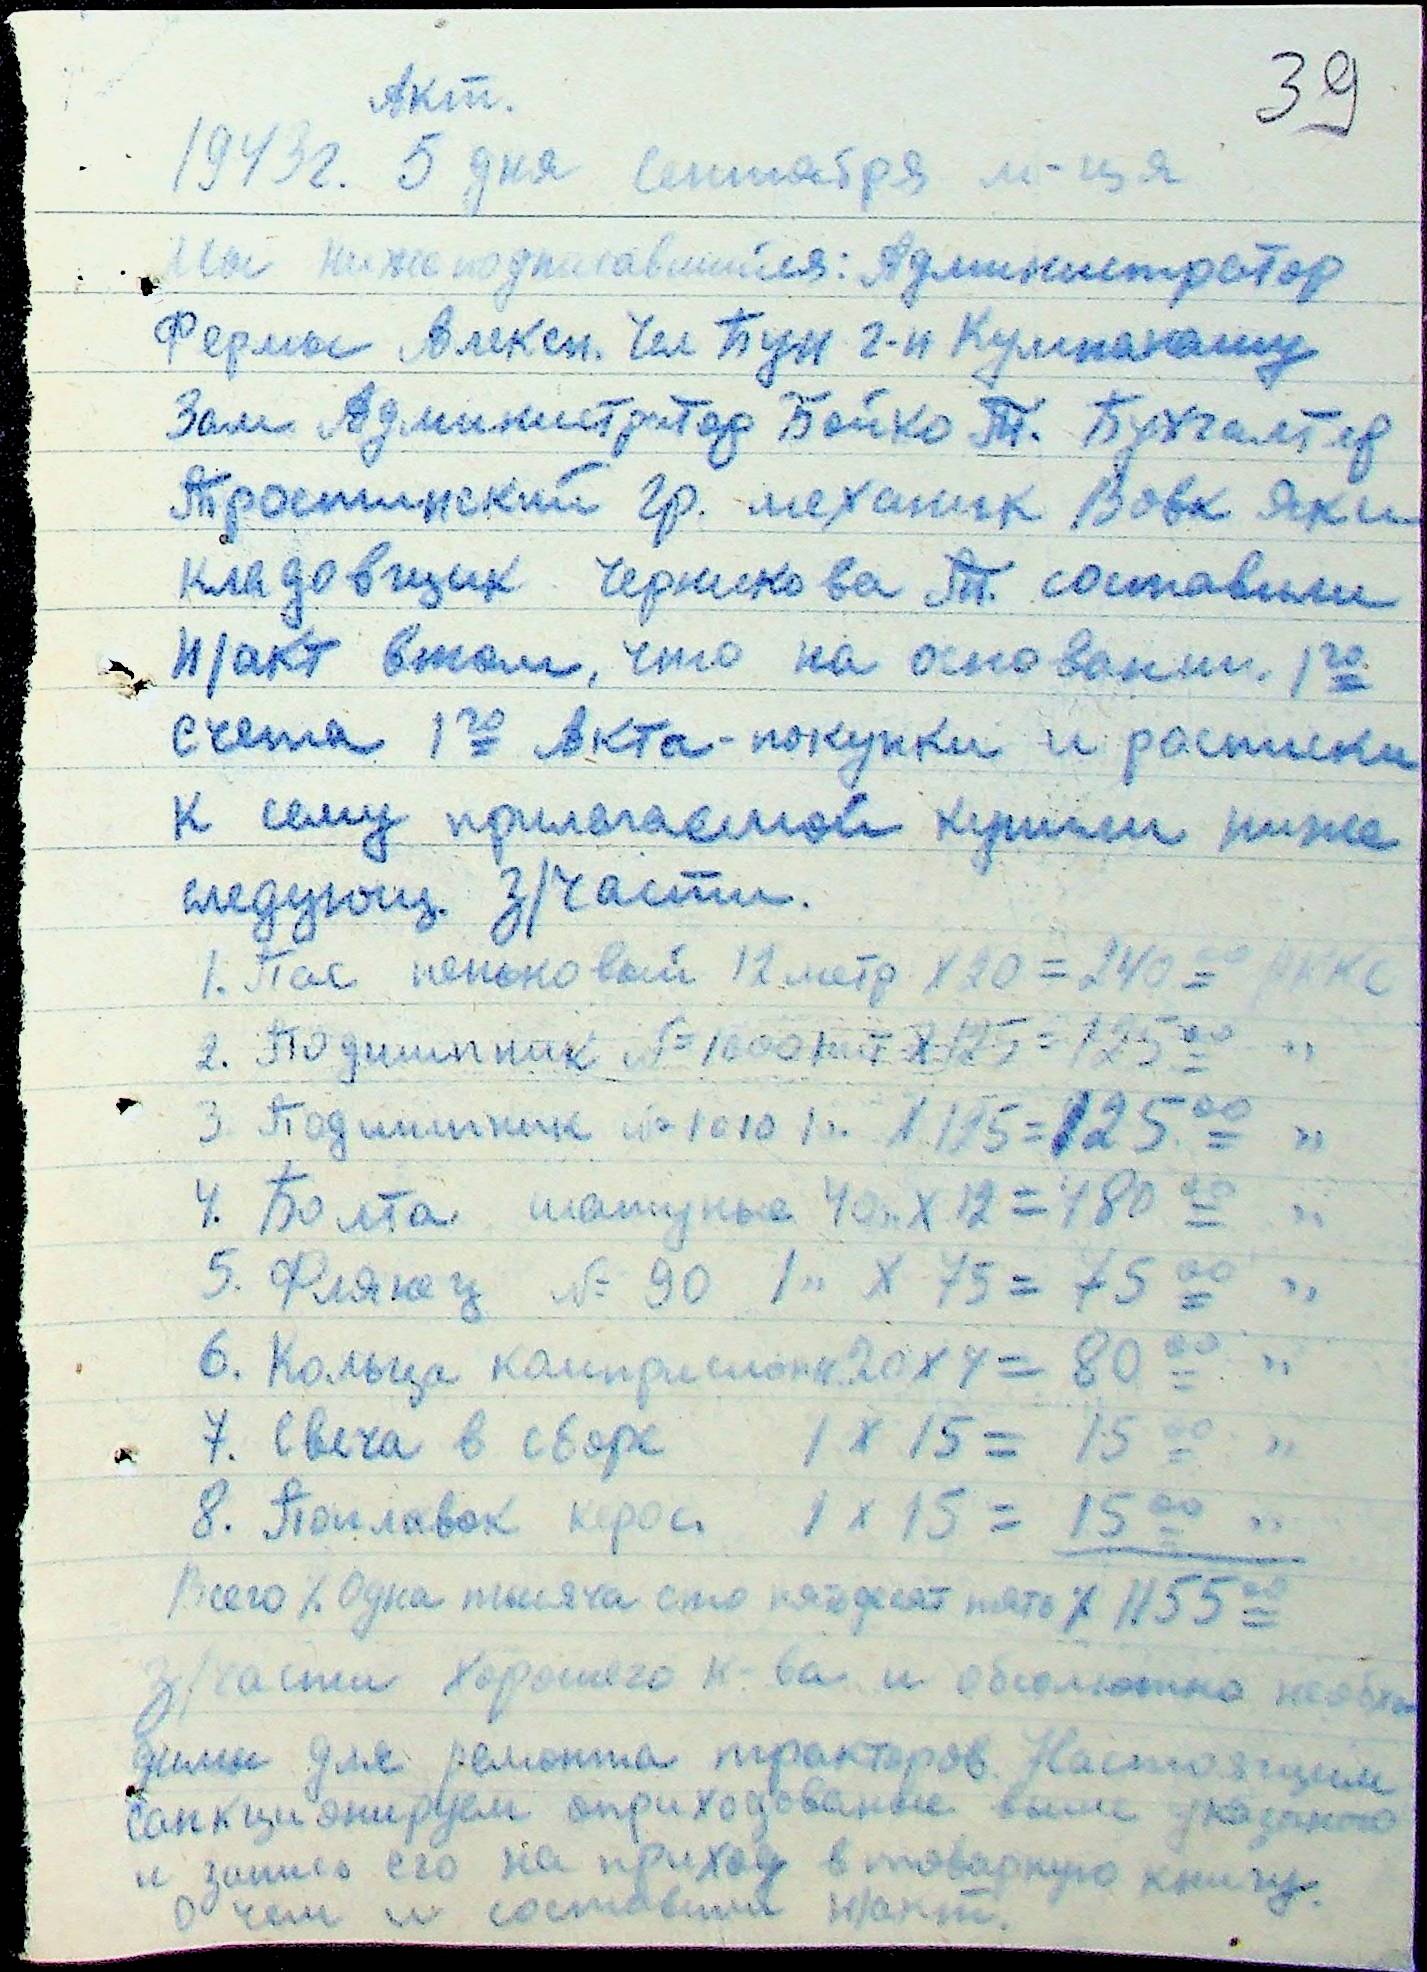 39
Акт.
1943г. 5 дня Сентября м-ця
Мы нижеподписавшийся: Администратор
Фермы Алексн. Чел Бун г-н Кумпанашу
Зам Администратор Бойко Т. Бухгалтер
Тростинский Гр. механик Вовк Яким
Кладовщик Черникова Т. составили
Н/акт втом, что на основании. 1го
счета 1го Акта-покупки и расписки
к сему прилагаемой купили ниже
следующ. З/части.
1. Пас пеньковый 12 метр х 20 = 240 00 РККС
2. Подшипник № 1000 1шт х 125 = 125 00 "
3. Подшипник № 1010 1" х 125 = 125 00 "
4. Болта шатуные 40" х 12 = 480 00 "
5. Флянец № 90 1" х 75 = 75 00 "
6. Кольца комприсионн. 20 х 4 = 80 00 "
7. Свеча в сборе 1 х 15 = 15 00 "
8. Поплавок керос. 1 х 15 = 15 00 "
Всего /. Одна тысяча сто пятьдесят пять / 1155 00
З/части хорошего к-ва и абсолютно необхо
димы для ремонта тракторов. Настоящим
санкционируем оприходование выше указаного
и запись его на приход в товарную книгу.
О чем и составили н/акт.